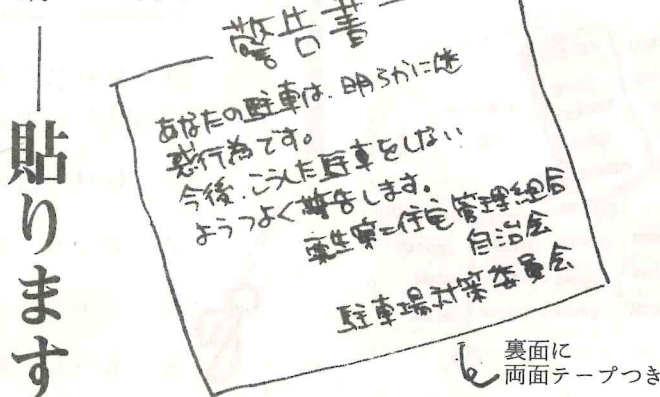 貼ります
警告書
あなたの駐車は、明らかに迷
惑行為です。
今後、こうした駐車をしない
ようつよく警告します。
第二住宅管理組合
自治会
駐車場対策委員会
裏面に
両面テープつき